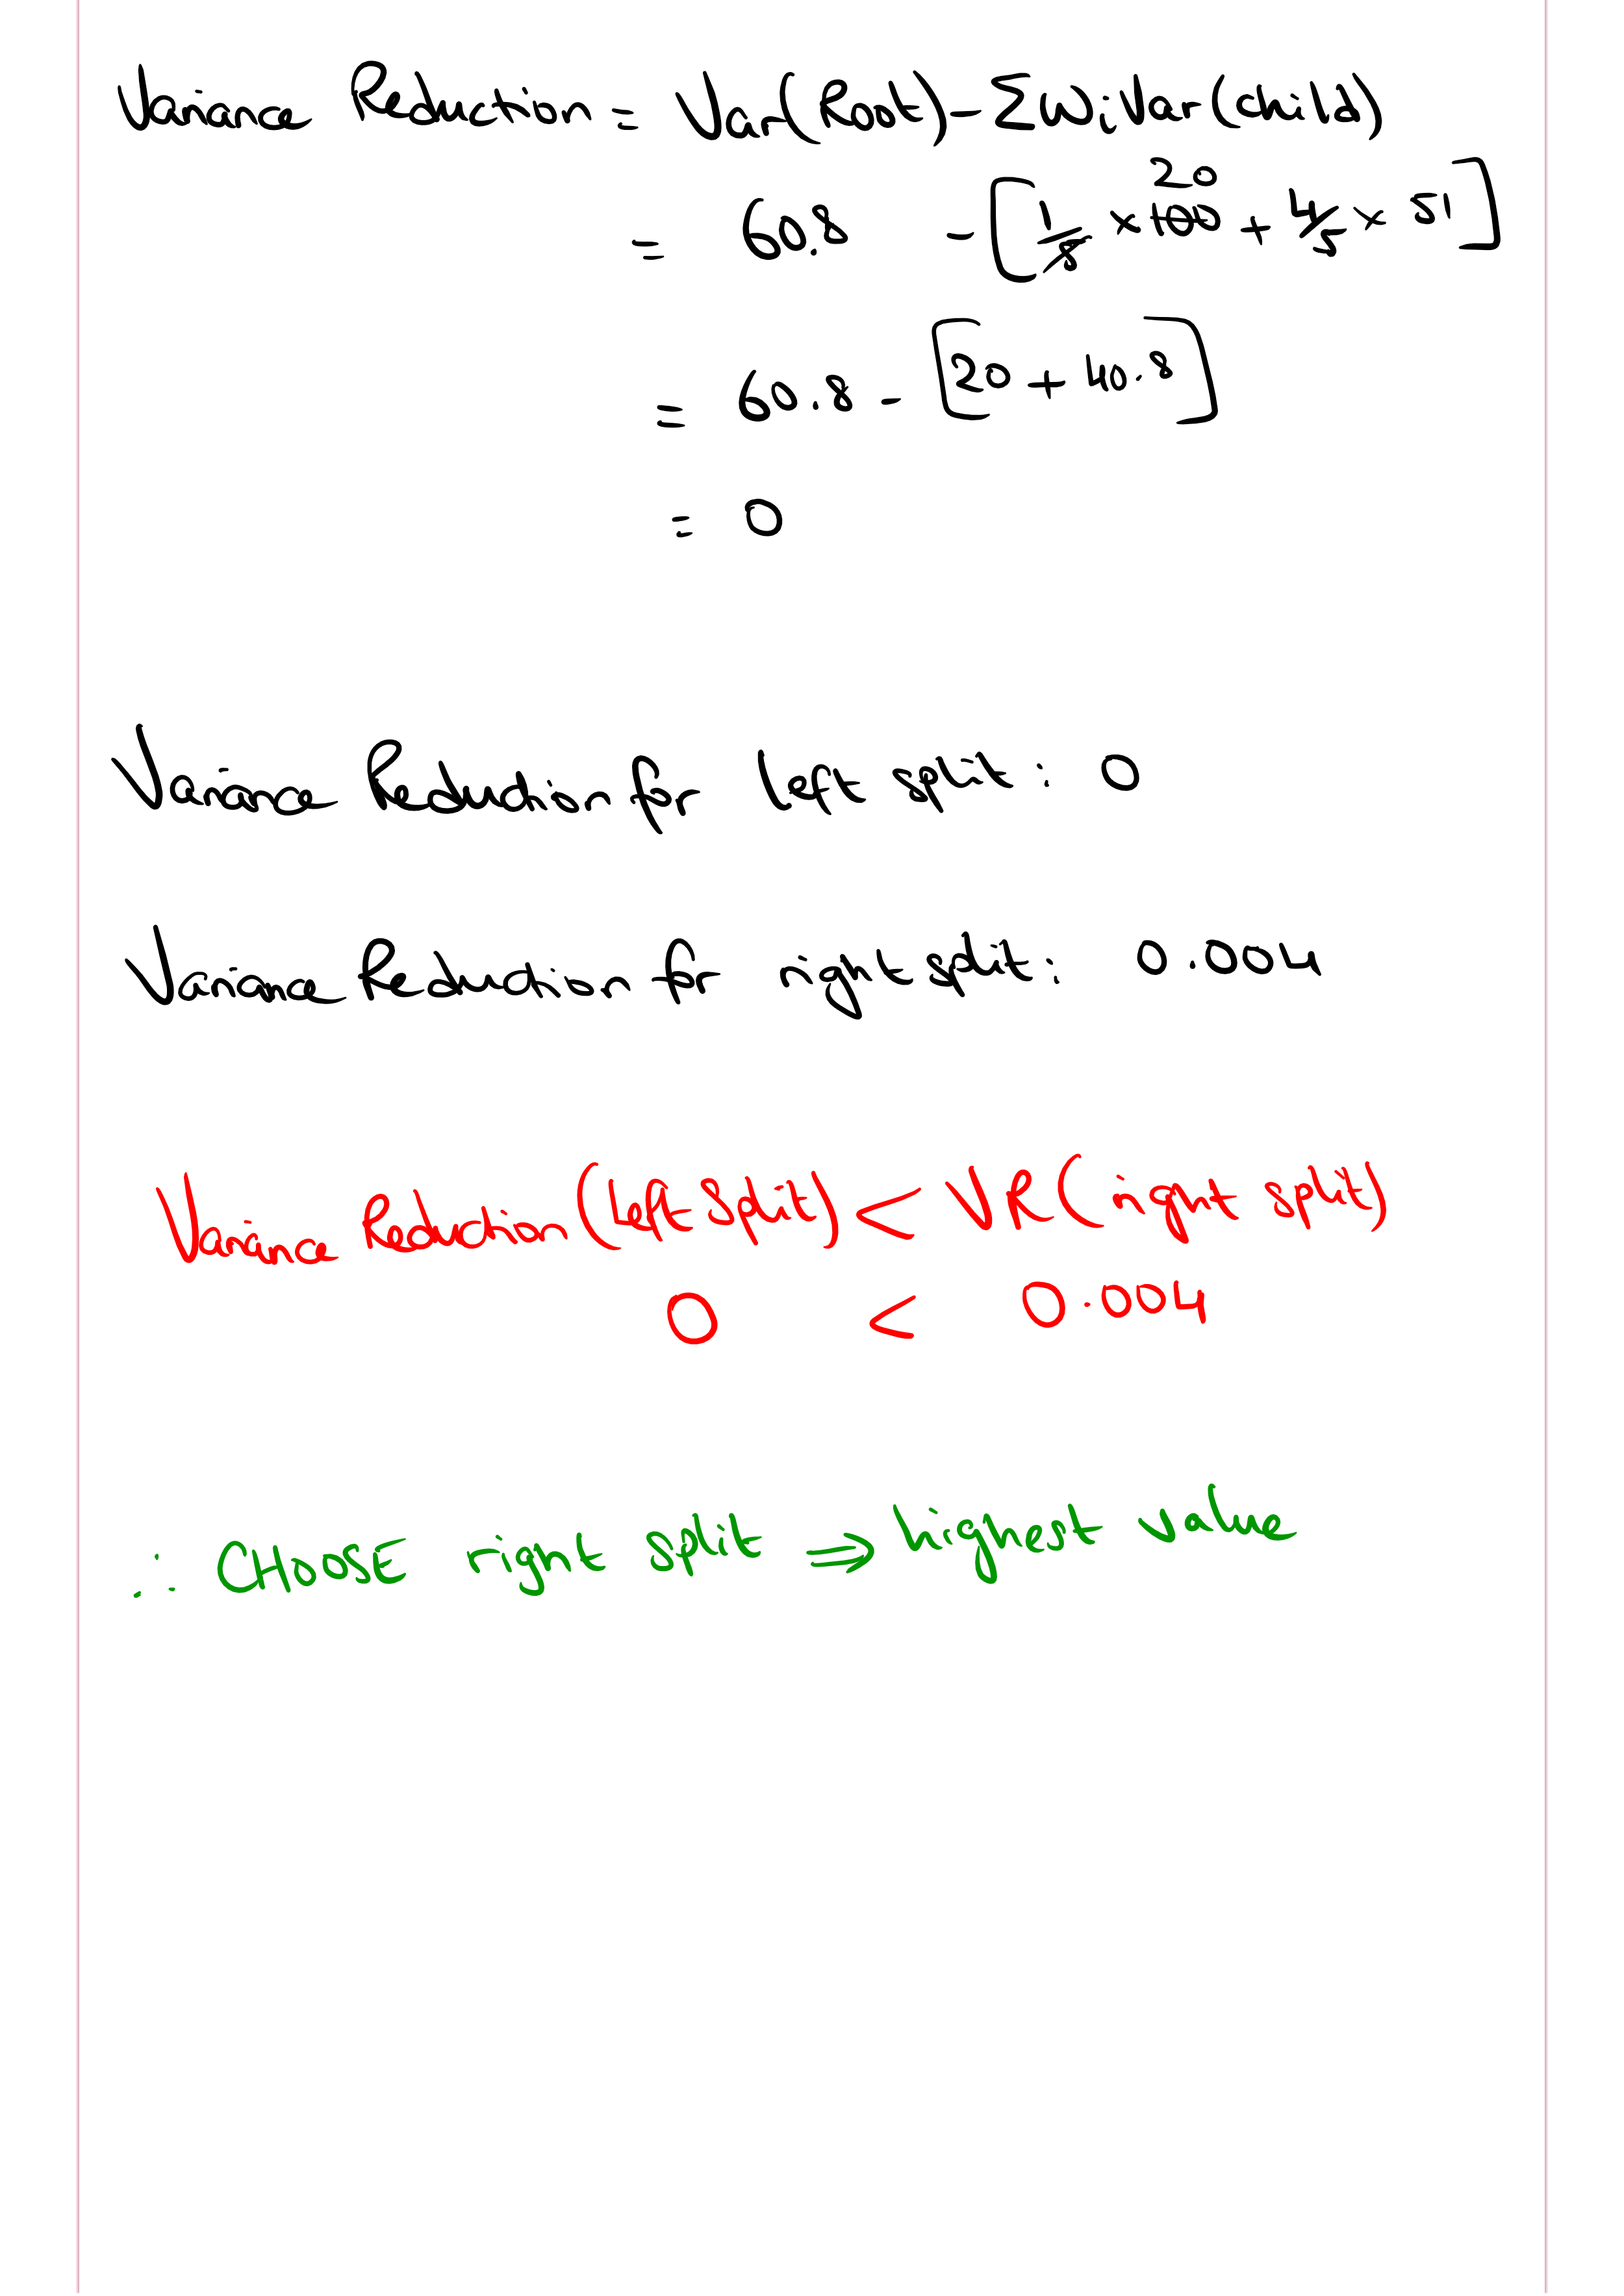 Variance Reduction = Var(Root) - Σwᵢ Var(child)
= 60.8 - [1/5 × 100 20 + 4/5 × 51]
= 60.8 - [20 + 40.8]
= 0
Variance Reduction for left split : 0
Variance Reduction for right split : 0.004
Variance Reduction (Left Split) < VR (right split)
0 < 0.004
∴ CHOOSE right split ⇒ highest value